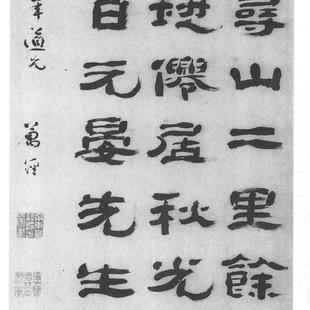 尋山二里餘
地居秋光
元晏先生
年道兄
萬經